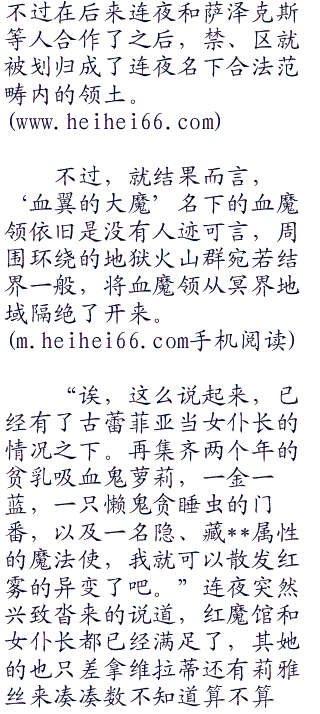 不过在后来连夜和萨泽克斯
等人合作了之后，禁、区就
被划归成了连夜名下合法范
畴内的领土。
(www.heihei66.com)
不过，就结果而言，
‘血翼的大魔’名下的血魔
领依旧是没有人迹可言，周
围环绕的地狱火山群宛若结
界一般，将血魔领从冥界地
域隔绝了开来。
(m.heihei66.com手机阅读)
“诶，这么说起来，已
经有了古蕾菲亚当女仆长的
情况之下。再集齐两个年的
贫乳吸血鬼萝莉，一金一
蓝，一只懒鬼贪睡虫的门
番，以及一名隐、藏**属性
的魔法使，我就可以散发红
雾的异变了吧。”连夜突然
兴致沓来的说道，红魔馆和
女仆长都已经满足了，其她
的也只差拿维拉蒂还有莉雅
丝来凑凑数不知道算不算